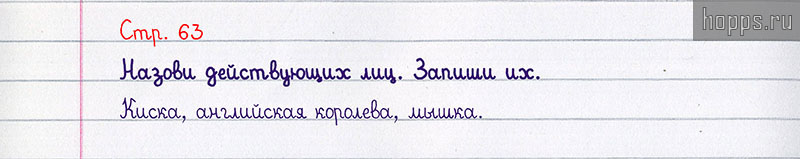 hopps.ru
Стр. 63
Назови действующих лиц. Запиши их.
Киска, английская королева, мышка.